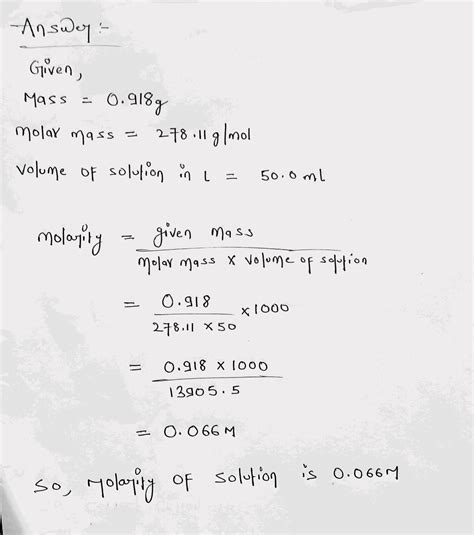 Answer :-
Given,
Mass = 0.918g
molar mass = 278.11 g/mol
volume of solution in L = 50.0 ml
molarity = given mass / molar mass x volume of solution
= 0.918 / 278.11 x 50 x 1000
= 0.918 x 1000 / 13905.5
= 0.066M
So, Molarity of solution is 0.066M